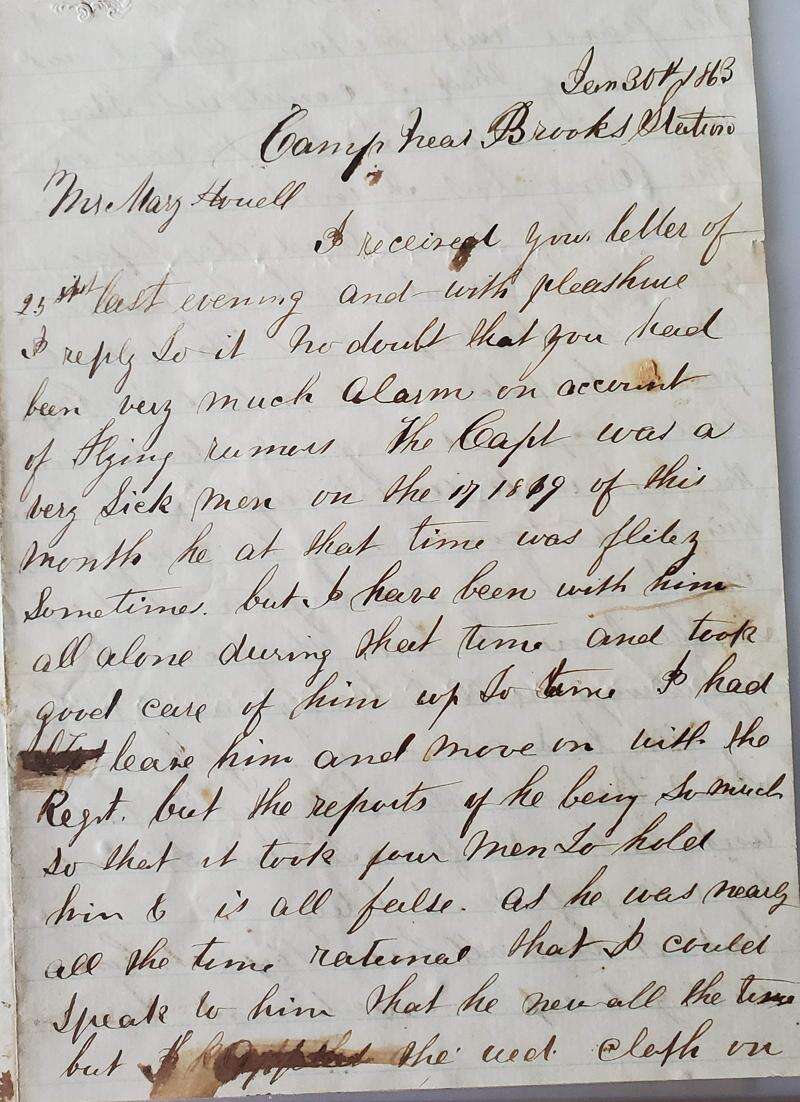 Jan 30th 1863
Camp near Brooks Station
Mrs Mary Howell
I received your letter of
25 inst last evening and with pleashure
I reply to it No doubt that you had
been very much Alarm on account
of flying rumors The Capt was a
very Sick man on the 17 18 &19 of this
month he at that time was flitey
Sometime. but I have been with him
all alone during that time and took
good care of him up to time I had
leave him and move on with the
Regt. but the reports of he being so much
so that it took four men to hold
him & is all false. as he was nearly
all the time rational that I could
speak to him that he new all the time
but I the wed cloth on